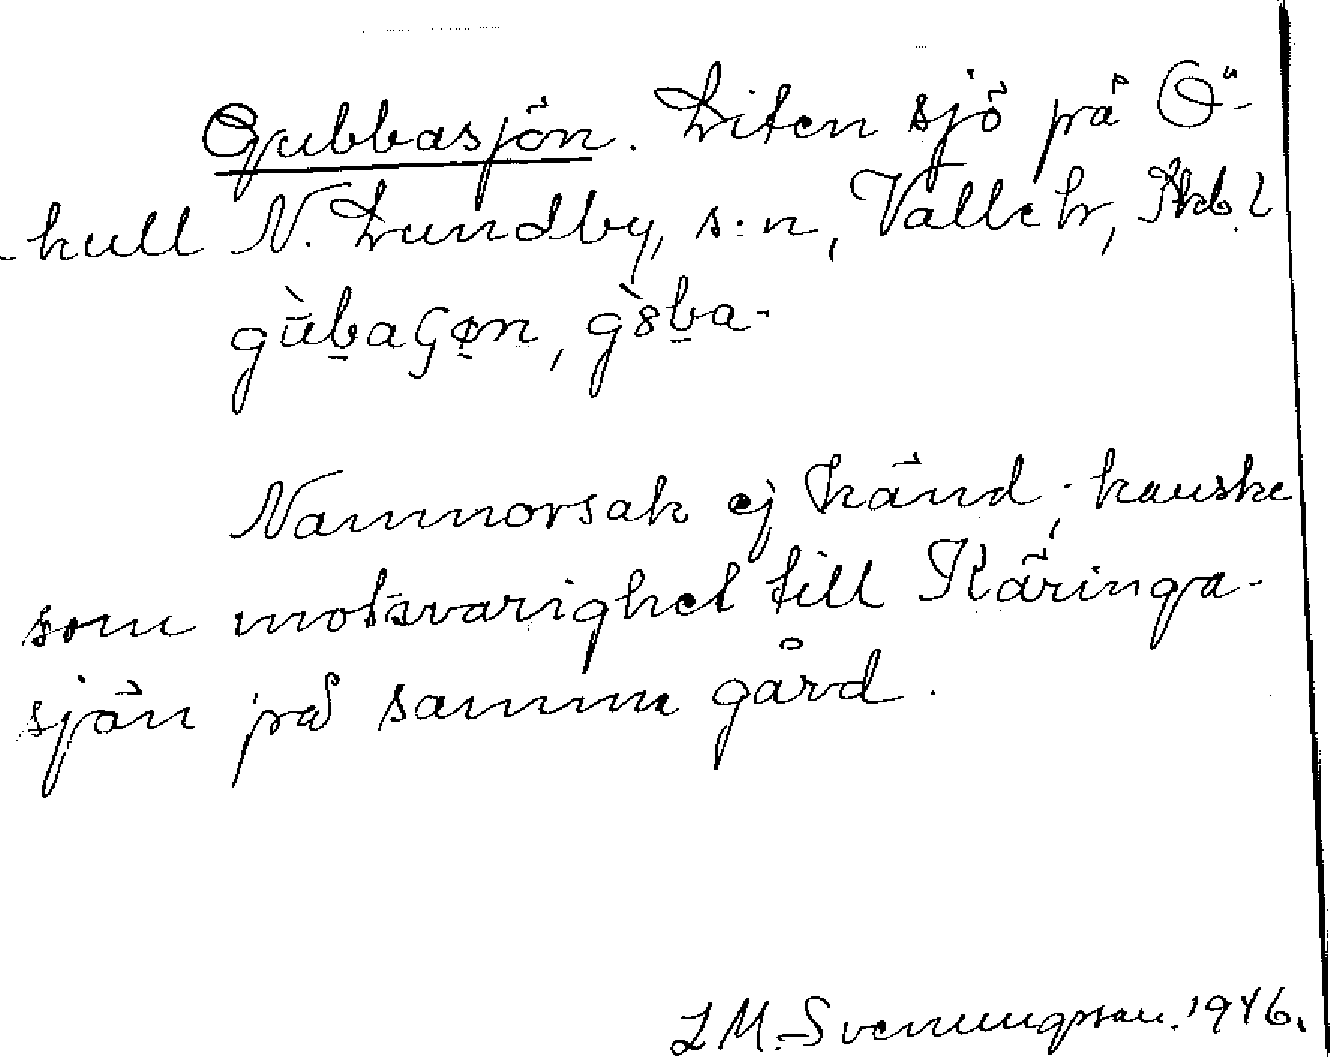 Gubbasjön. Liten sjö på Ö-
kull N. Lundby, s:n, Valle hr, Skb. l
gùb̠aʃøn, g8̀b̠a-
Namnorsak ej känd; kanske
som motsvarighet till Käringa-
sjön på samma gård.
J M. Svenungsson. 1946.